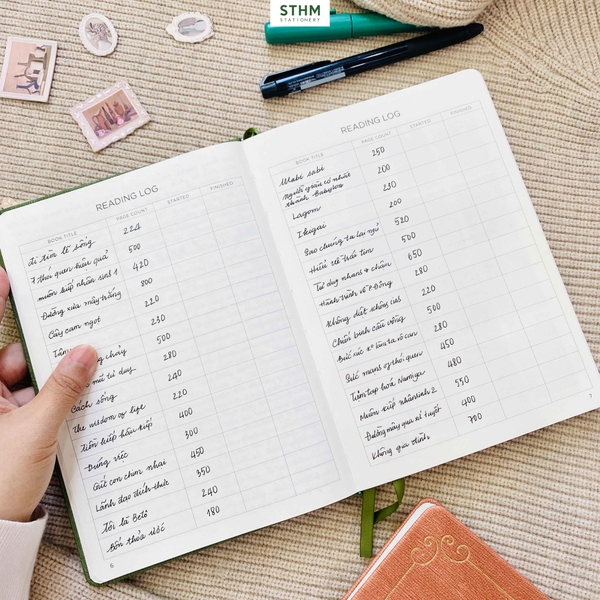 STHM
STATIONERY
READING LOG
BOOK TITLE PAGE COUNT STARTED FINISHED
đi tìm lẽ sống 224
7 thói quen hiệu quả 500
muôn kiếp nhân sinh 1 420
Đường xưa mây trắng 800
Cây cam ngọt 220
230
500
mã tư duy 280
Cách sống 240
the wisdom of life 220
Tiền kiếp hậu kiếp 400
Đúng việc 300
Giết con chim nhại 450
Lãnh đạo đích thực 350
Tôi là Bêtô 240
Bốn thỏa ước 180
6
READING LOG
BOOK TITLE PAGE COUNT STARTED FINISHED
Wabi sabi 250
Người giàu có nhất
thành Babylon 200
Lagom 230
Ikigai 200
Sao chúng ta lại ngủ 520
Hiểu về trái tim 500
Tư duy nhanh & chậm 650
Hành trình về P.Đông 280
Không diệt không sinh 220
Chiến binh cầu vồng 500
Bức xúc 280
Sức mạng of thói quen 450
Tiệm tạp hoá Namiya 480
Muôn kiếp nhân sinh 2 550
Đường mây qua xứ tuyết 400
Không gia đình 700
7